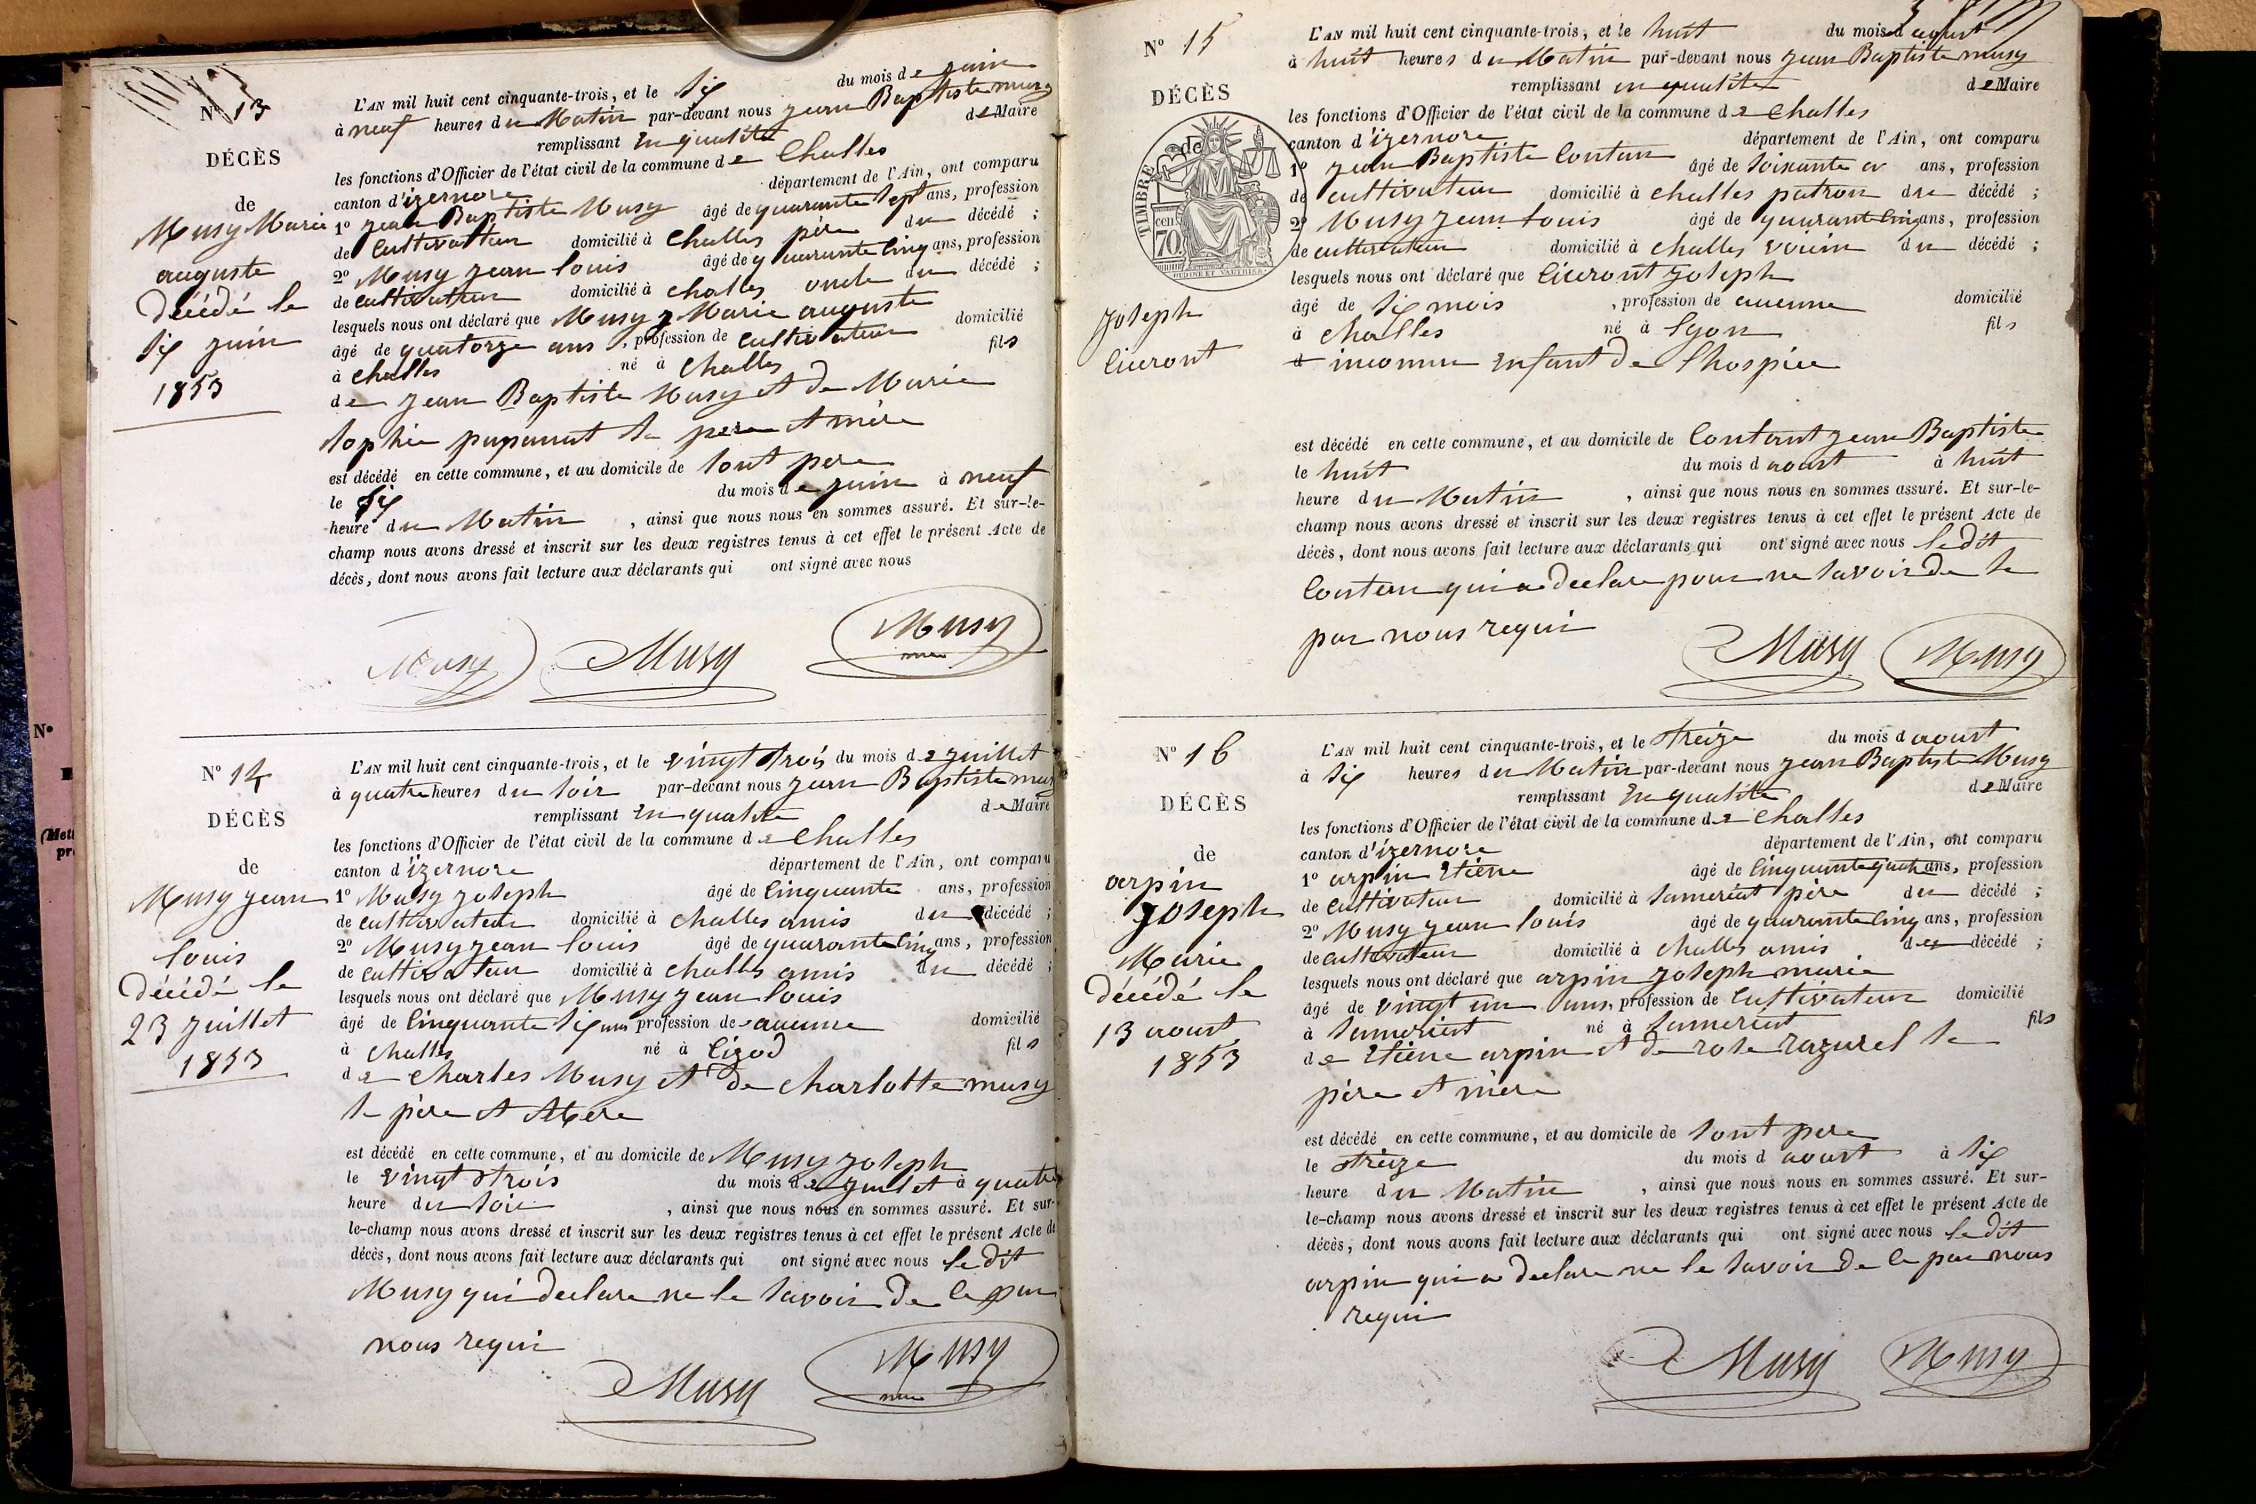 N° 13
DÉCÈS
de
Musy Marie
auguste
Décédé le
Six juin
1853
L'AN mil huit cent cinquante-trois, et le Six du mois de juin
à neuf heures du Matin par-devant nous jean Baptiste musy
remplissant en qualité de Maire
les fonctions d'Officier de l'état civil de la commune de Challes
canton d'izernore département de l'Ain, ont comparu
1° jean Baptiste Musy âgé de quarante sept ans, profession
de cultivateur domicilié à Challes père du décédé ;
2° Musy jean louis âgé de quarante cinq ans, profession
de cultivateur domicilié à challes oncle du décédé ;
lesquels nous ont déclaré que Musy Marie auguste
âgé de quatorze ans, profession de cultivateur domicilié
à challes né à challes fils
de jean Baptiste Musy et de Marie
sophie papanut se pere et mère
est décédé en cette commune, et au domicile de sont pere
le Six du mois de juin à neuf
heure du Matin, ainsi que nous nous en sommes assuré. Et sur-le-
champ nous avons dressé et inscrit sur les deux registres tenus à cet effet le présent Acte de
décès, dont nous avons fait lecture aux déclarants qui ont signé avec nous
Musy Musy Musy
N° 14
DÉCÈS
de
Musy jean
louis
Décédé le
23 juillet
1853
L'AN mil huit cent cinquante-trois, et le vingt trois du mois de juillet
à quatre heures du soir par-devant nous jean Baptiste musy
remplissant en qualité de Maire
les fonctions d'Officier de l'état civil de la commune de Challes
canton d'izernore département de l'Ain, ont comparu
1° Musy joseph âgé de cinquante ans, profession
de cultivateur domicilié à challes amis du décédé ;
2° Musy jean louis âgé de quarante cinq ans, profession
de cultivateur domicilié à challes amis du décédé ;
lesquels nous ont déclaré que Musy jean louis
âgé de cinquante six ans profession de aucune domicilié
à challes né à Cizod fils
de charles Musy et de charlotte musy
se père et Mere
est décédé en cette commune, et au domicile de Musy joseph
le vingt trois du mois de juilet à quatre
heure du soir, ainsi que nous nous en sommes assuré. Et sur-
le-champ nous avons dressé et inscrit sur les deux registres tenus à cet effet le présent Acte de
décès, dont nous avons fait lecture aux déclarants qui ont signé avec nous le dit
Musy qui declare ne le savoir de ce par
nous requi
Musy Musy
N° 15
DÉCÈS
de
TIMBRE
70 cen
OUDINE ET VAUTHIER
joseph
Ciceront
L'AN mil huit cent cinquante-trois, et le huit du mois d'aoust
à huit heures du Matin par-devant nous jean Baptiste musy
remplissant en qualité de Maire
les fonctions d'Officier de l'état civil de la commune de Challes
canton d'izernore département de l'Ain, ont comparu
1° jean Baptiste Contan âgé de soixante ans, profession
de cultivateur domicilié à challes patron du décédé ;
2° Musy jean louis âgé de quarant cinq ans, profession
de cultivateur domicilié à challes voisin du décédé ;
lesquels nous ont déclaré que Ciceront joseph
âgé de Six mois, profession de aucune domicilié
à challes né à Lyon fils
d inconnu enfant de l'hospice
est décédé en cette commune, et au domicile de Contant jean Baptiste
le huit du mois d aoust à huit
heure du Matin, ainsi que nous nous en sommes assuré. Et sur-le-
champ nous avons dressé et inscrit sur les deux registres tenus à cet effet le présent Acte de
décès, dont nous avons fait lecture aux déclarants qui ont signé avec nous le dit
Contan qui a declare pour ne savoir de se
par nous requi
Musy Musy
N° 16
DÉCÈS
de
arpin
Joseph
Marie
Décédé le
13 aoust
1853
L'AN mil huit cent cinquante-trois, et le treize du mois d aoust
à Six heures du Matin par-devant nous jean Baptiste Musy
remplissant en qualité de Maire
les fonctions d'Officier de l'état civil de la commune de Challes
canton d'izernore département de l'Ain, ont comparu
1° arpin Etiene âgé de cinquante quatre ans, profession
de cultivateur domicilié à Samerieat père du décédé ;
2° Musy jean louis âgé de quarante cinq ans, profession
de cultivateur domicilié à challes amis du décédé ;
lesquels nous ont déclaré que arpin joseph marie
âgé de vingt un ans, profession de cultivateur domicilié
à Samerieat né à Samerieat fils
de Etiene arpin et de rose razurel se
père et mère
est décédé en cette commune, et au domicile de sont pere
le treize du mois d aoust à Six
heure du Matin, ainsi que nous nous en sommes assuré. Et sur-
le-champ nous avons dressé et inscrit sur les deux registres tenus à cet effet le présent Acte de
décès, dont nous avons fait lecture aux déclarants qui ont signé avec nous le dit
arpin qui a declare ne le savoir de ce par nous
requi
Musy Musy